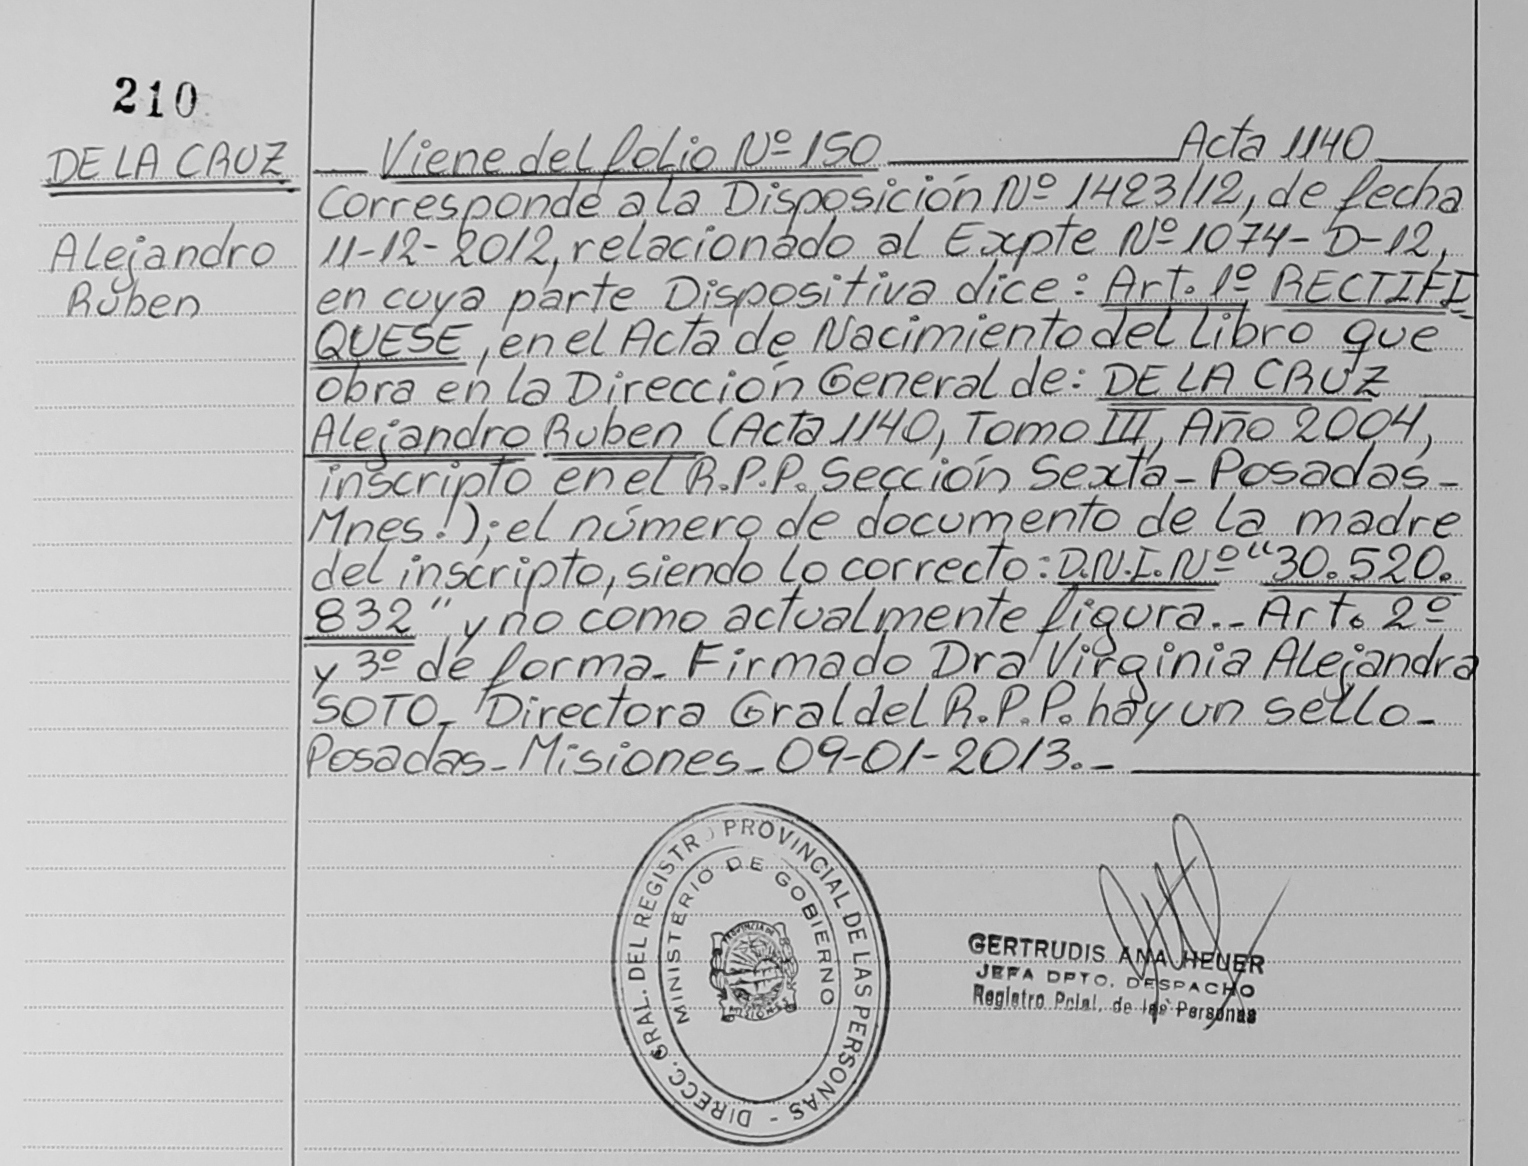 210
DE LA CRUZ
Alejandro
Ruben
Viene del folio Nº 150 Acta 1140
Corresponde a la Disposición Nº 1423/12, de fecha
11-12-2012, relacionado al Expte Nº 1074-D-12,
en cuya parte Dispositiva dice: Art. 1º RECTIFI
QUESE, en el Acta de Nacimiento del Libro que
obra en la Dirección General de: DE LA CRUZ
Alejandro Ruben (Acta 1140, Tomo III, Año 2004,
inscripto en el R.P.P. Sección Sexta - Posadas -
Mnes.!); el número de documento de la madre
del inscripto, siendo lo correcto: D.N.I. Nº "30.520.
832" y no como actualmente figura.- Art. 2º
y 3º de forma. Firmado Dra Virginia Alejandra
SOTO - Directora Gral del R.P.P. hay un sello -
Posadas - Misiones - 09-01-2013. -
DIRECC. GRAL. DEL REGISTRO PROVINCIAL DE LAS PERSONAS -
MINISTERIO DE GOBIERNO
PROVINCIA DE
MISIONES
GERTRUDIS ANA HEUER
JEFA DPTO. DESPACHO
Registro Pcial. de las Personas